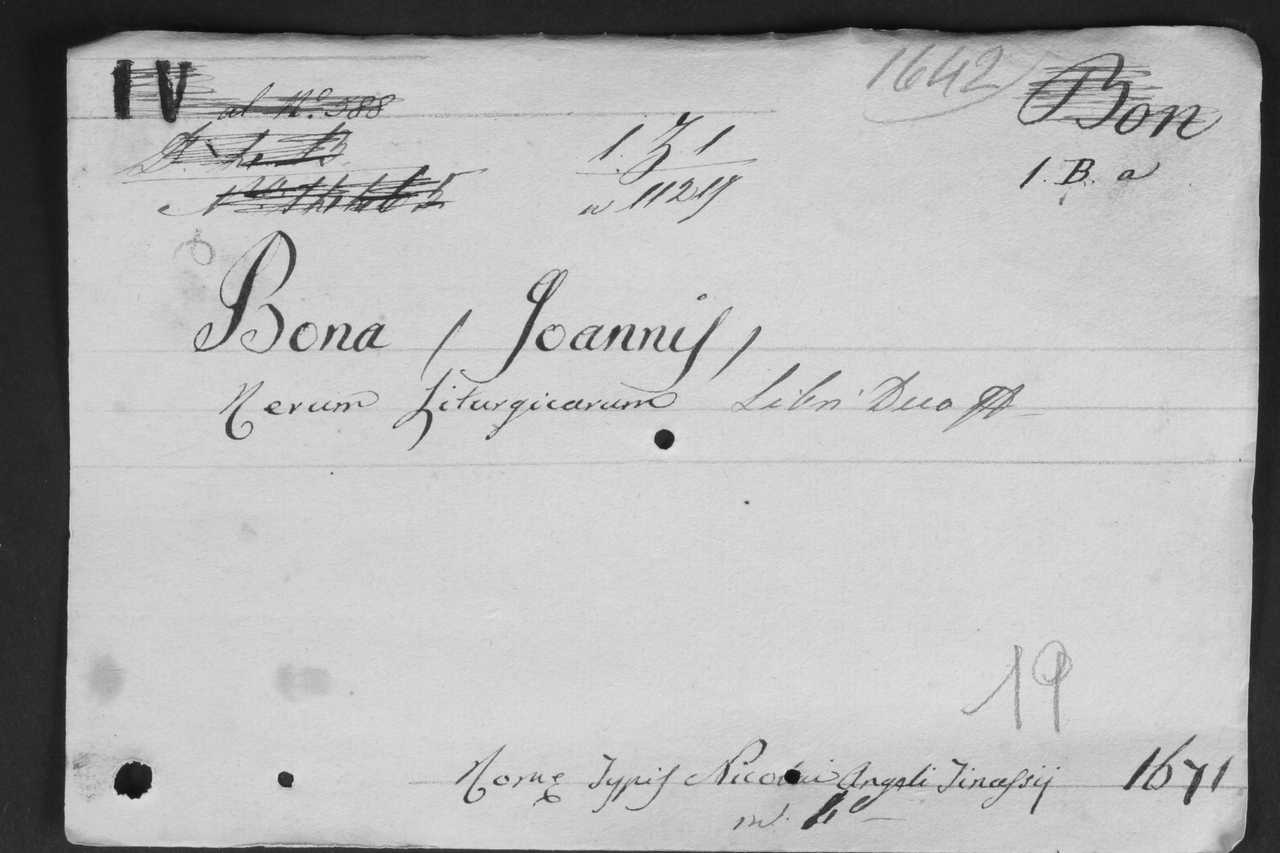 IV
al N.º 388
1642
Bon
1. Z 1
1. B. a
Bona ( Joannis )
Rerum Liturgicarum Libri Duo
19
Romę Typis Nicolai Angeli Tinassij 1671
in 4º